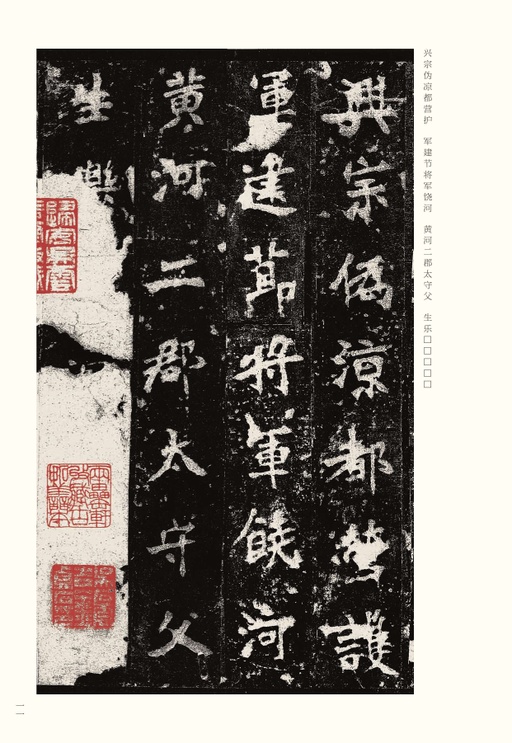 兴宗伪凉都营护　军建节将军饶河　黄河二郡太守父　生乐□□□□□
興宗偽涼都營護
軍建節將軍饒河
黃河二郡太守父
生樂
一一